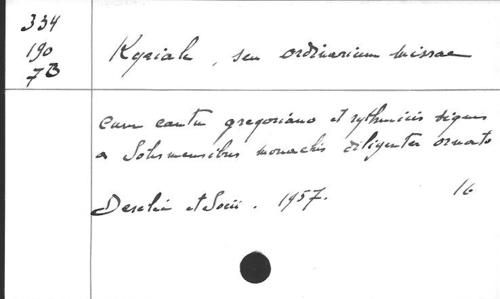 334
190
7B
Kyriale, seu ordinarium missae
cum cantu gregoriano et rythmicis signis
a Solesmensibus monachis diligenter ornato
Desclée et Socii. 1957. 16